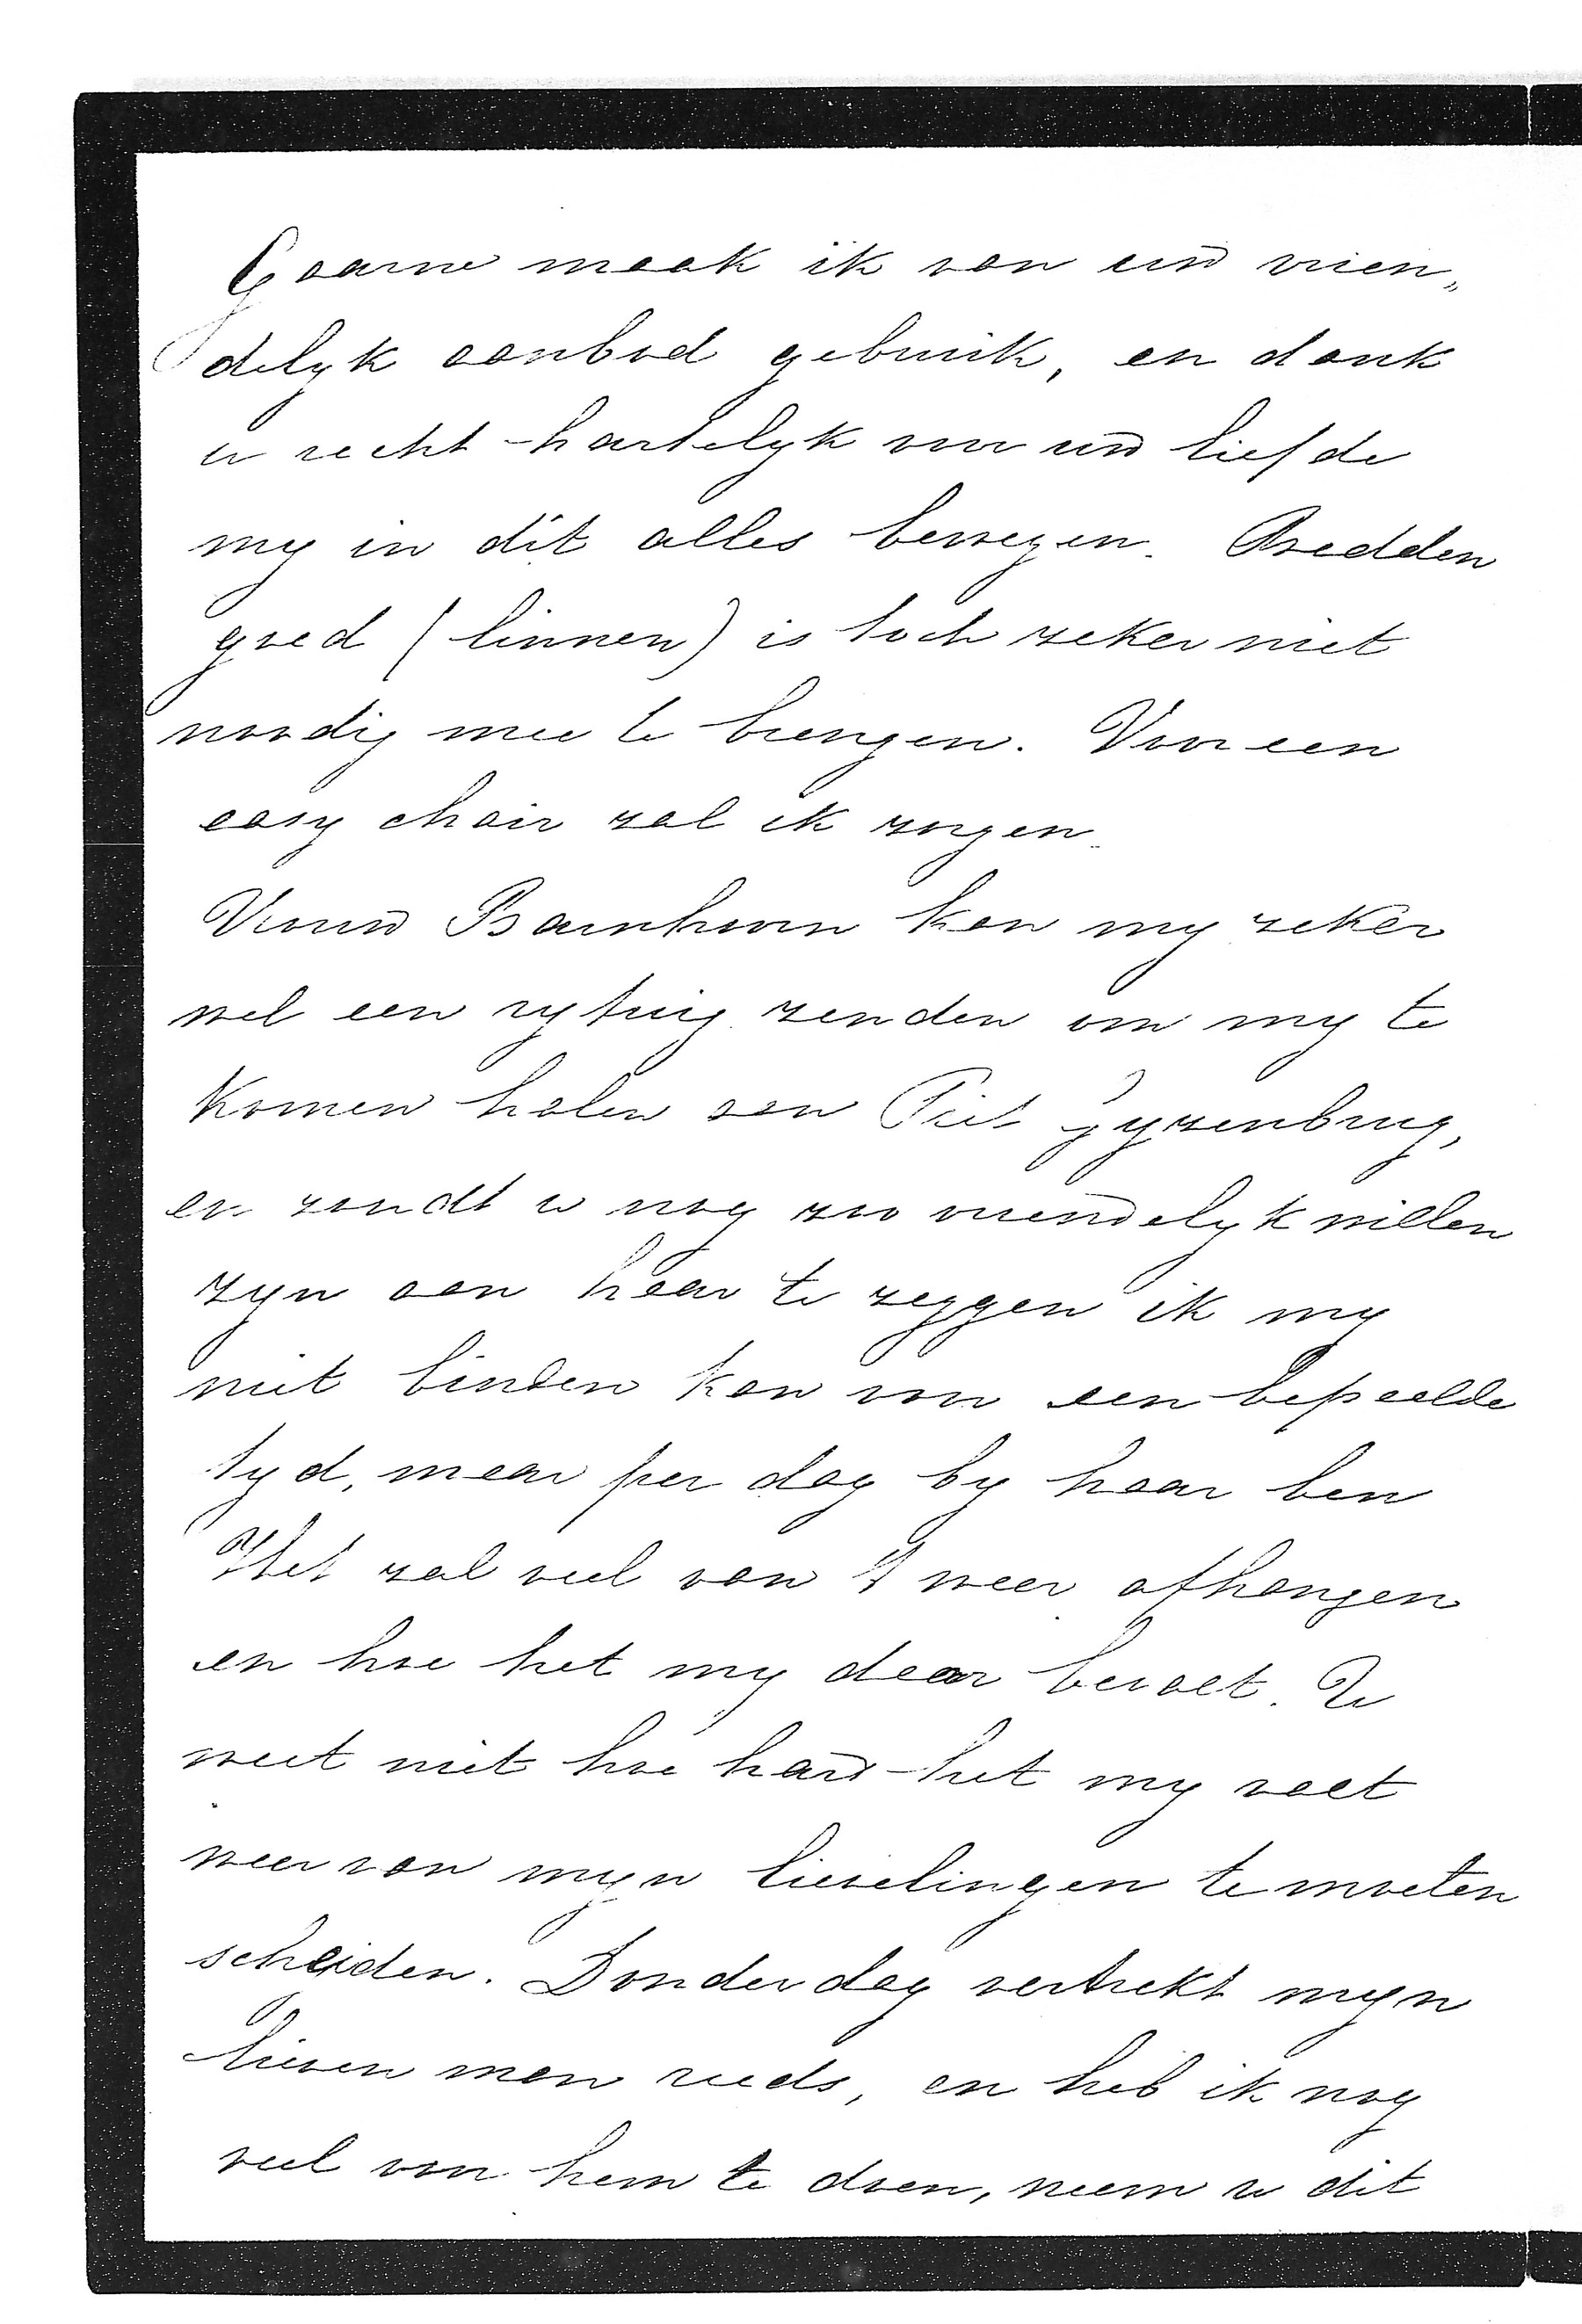 Gaarne maak ik van uw vrien„
delyk aanbod gebruik, en dank
u recht hartelyk voor uw liefde
my in dit alles bewezen. Bedden
goed (linnen) is toch zeker niet
noodig mee te brengen. Voor een
easy chair zal ik zorgen.
Vrouw Barnhoorn kan my zeker
wel een rytuig zenden om my te
komen halen aan Piet Gyzenbrug,
en zoudt u nog zoo vriendelyk willen
zyn aan haar te zeggen ik my
niet binden kan voor een bepaelde
tyd, maar per dag by haar ben
Het zal veel van 't weer afhangen
en hoe het my daar bevalt. U
weet niet hoe hard het my valt
weer van myn lievelingen te moeten
scheiden. Donderdag vertrekt myn
lieven man reeds, en heb ik nog
veel voor hem te doen, neem u dit